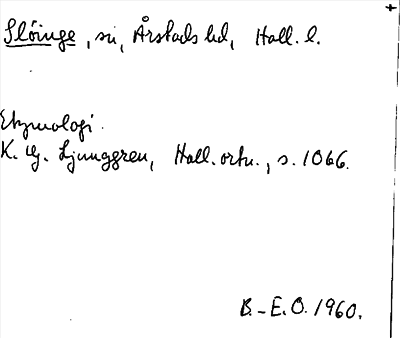 Slöinge, sn, Årstads hd, Hall. l.
Etymologi.
K. G. Ljunggren, Hall. ortn., s. 1066.
B.-E.O. 1960.